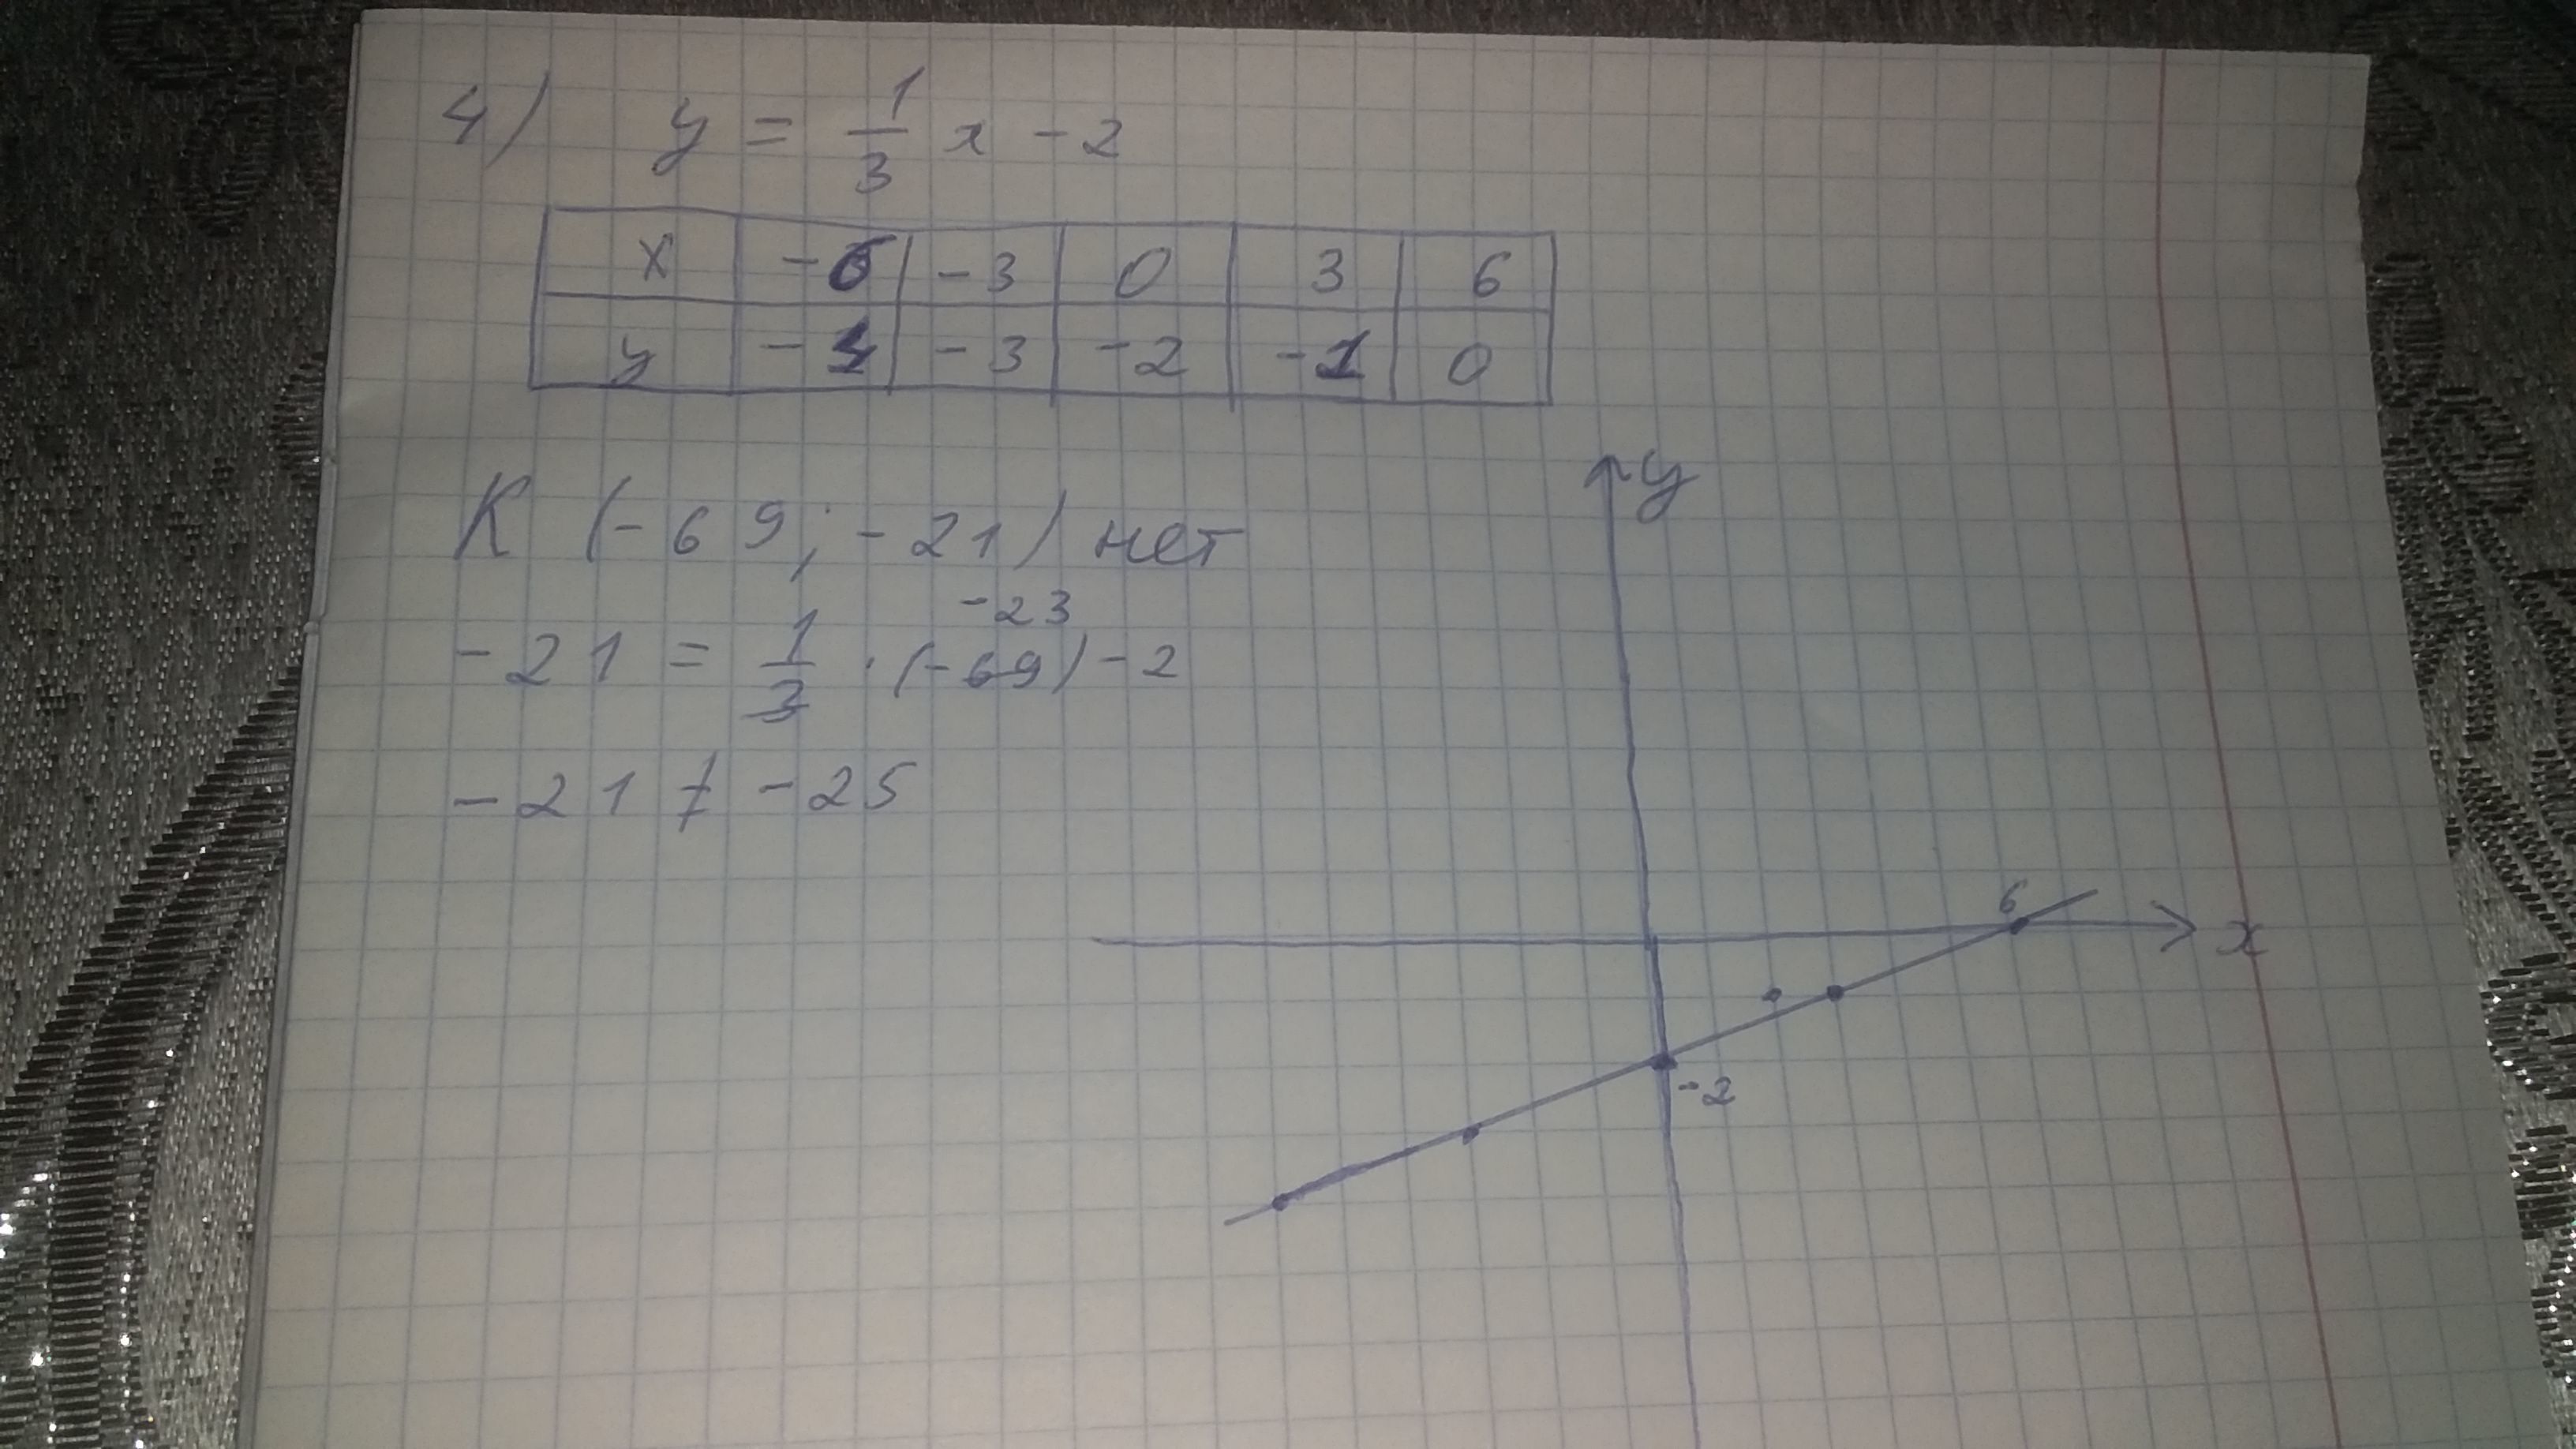 4) y = 1/3 x - 2
x -6 -3 0 3 6
y -4 -3 -2 -1 0
K (-69; -21) нет
-23
-21 = 1/3 · (-69) - 2
-21 ≠ -25
y
6
x
-2